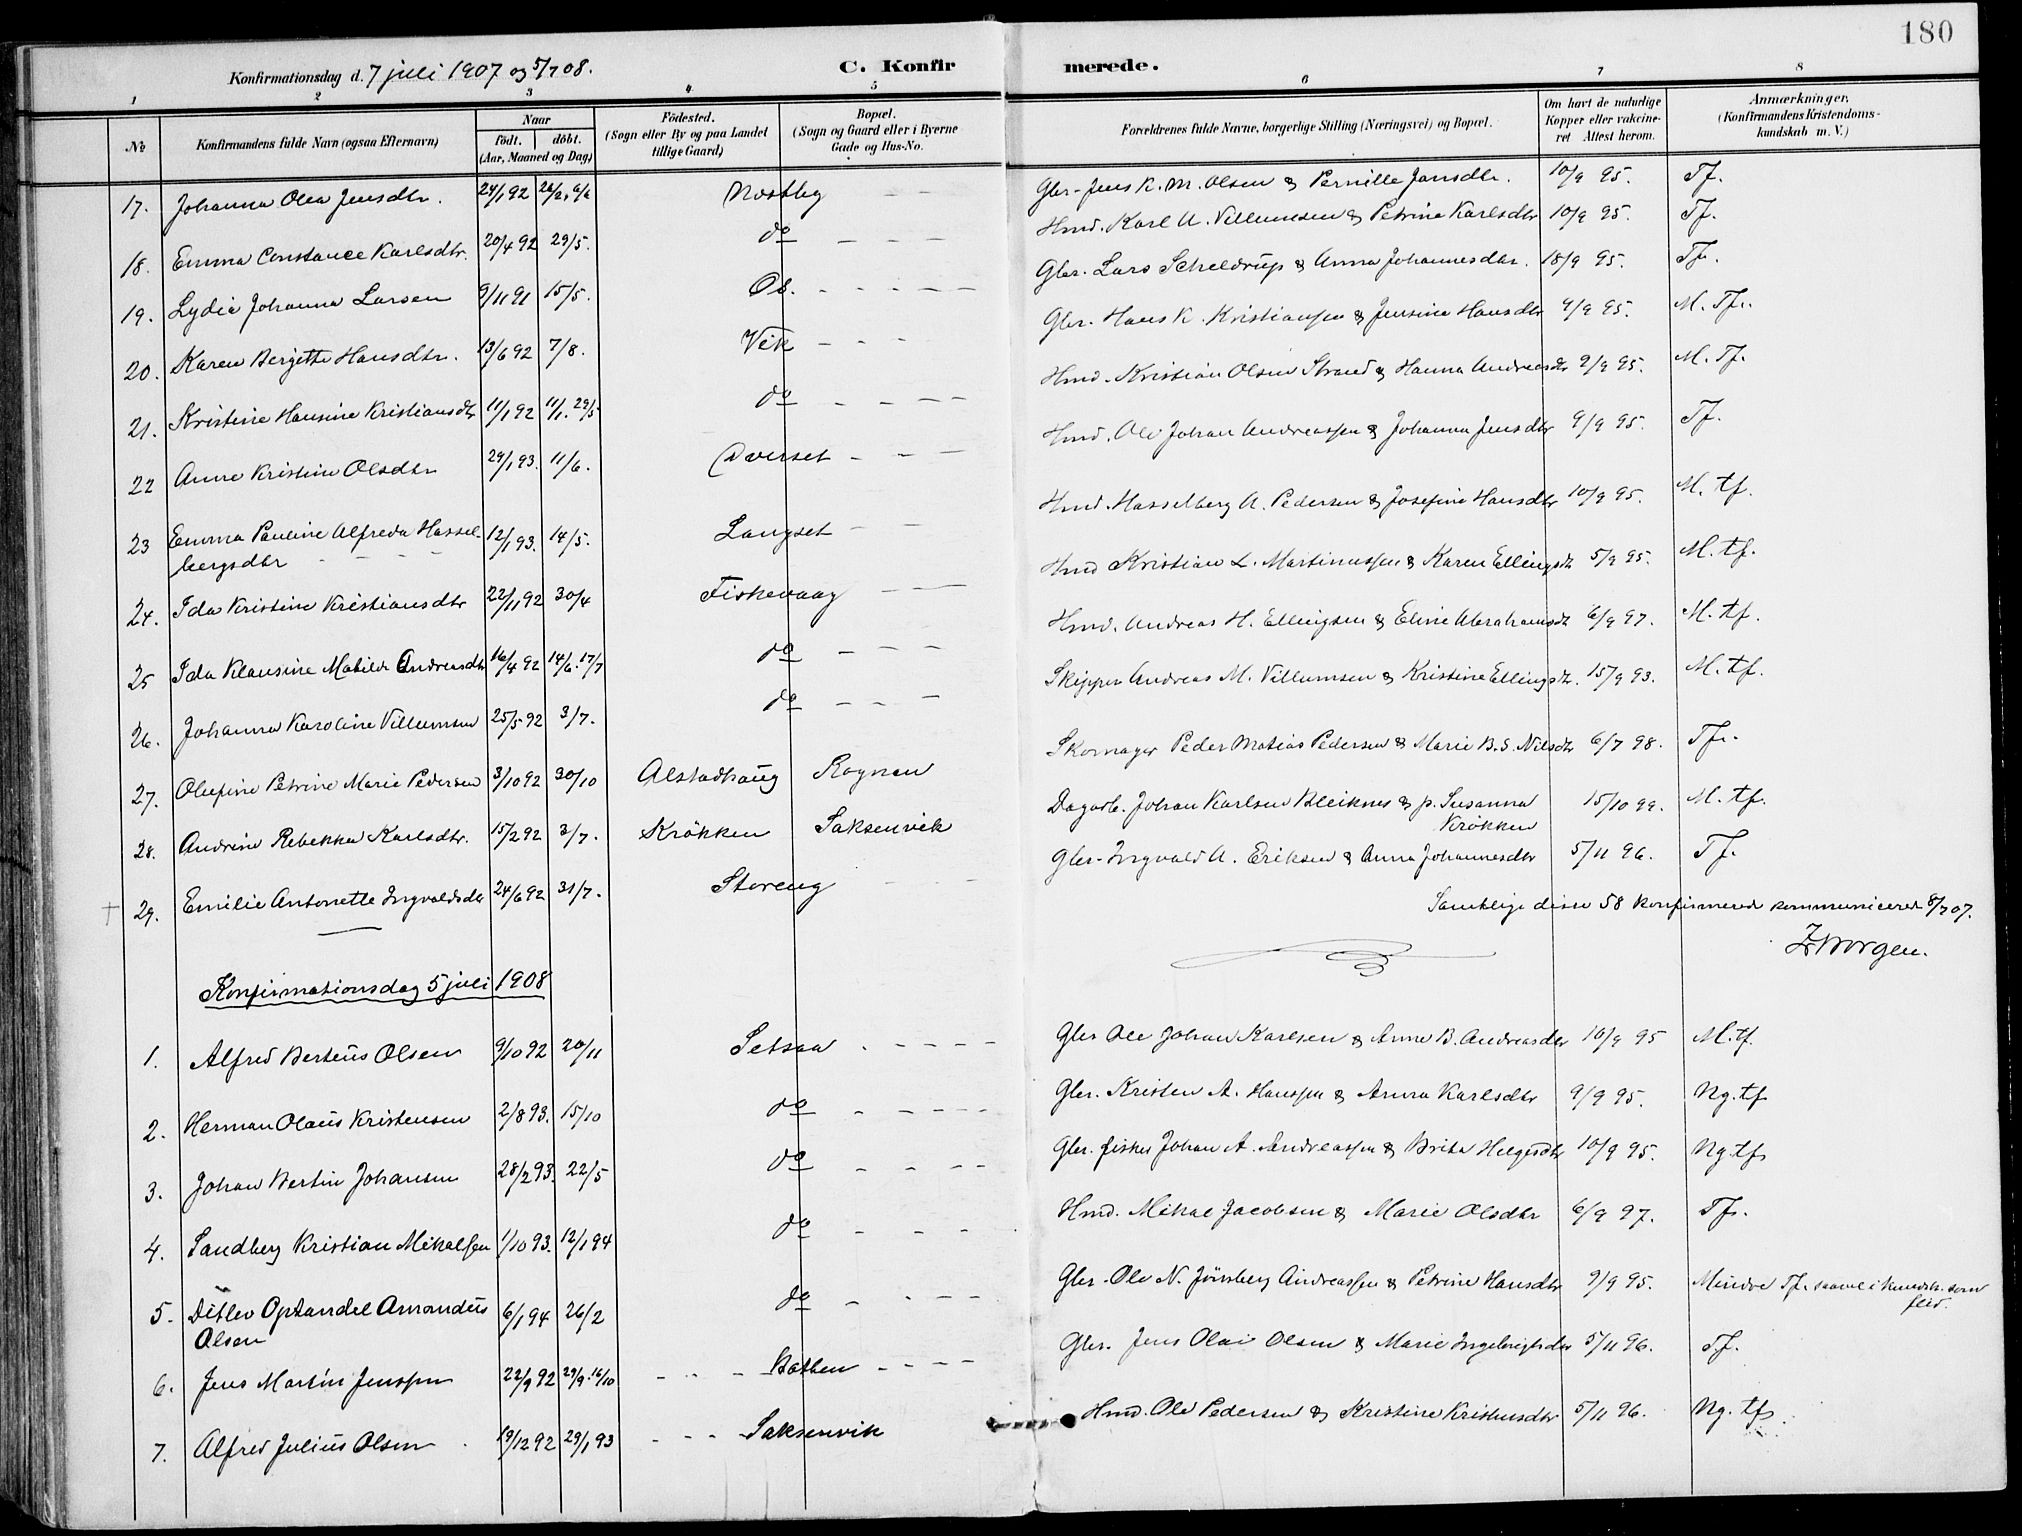 180
Konfirmationsdag d. 7 juli 1907 og 5/7 08.
C. Konfirmerede.
1 2 3 4 5 6 7 8
No
Konfirmandens fulde Navn (ogsaa Efternavn)
Naar
født. døbt.
(Aar, Maaned og Dag)
Fødested.
(Sogn eller By og paa Landet
tillige Gaard)
Bopæl.
(Sogn og Gaard eller i Byerne
Gade og Hus-No.
Forældrenes fulde Navne, borgerlige Stilling (Næringsvei) og Bopæl.
Om havt de naturlige
Kopper eller vakcineret Attest herom.
Anmærkninger.
(Konfirmandens Kristendomskundskab m. V.)
17. Johanna Olea Jensdtr. 24/1 92 Nostby Gbr. Jens K. M. Olsen & Pernille Jansdtr. 10/9 95. Tf.
18. Emma Constance Karlsdtr. 20/4 92 29/5. do Hmd. Karl A. Villumsen & Petrine Karlsdtr 10/9 95. Tf.
19. Lydia Johanna Larsen 9/11 91 15/5. Os. Gbr. Lars Scheldrup & Anna Johannesdtr. 18/9 95. Tf.
20. Karen Bergitte Hansdtr. 13/6 92 7/8. Vik Gbr. Hans K. Kristiansen & Jensine Hansdtr 9/9 95. M. Tf.
21. Kristine Hansine Kristiansdtr 11/1 92 11/1. 29/5 do Hmd. Kristian Olsen Strand & Hanna Andreasdtr 9/9 95. M. Tf.
22 Anne Kristine Olsdtr 29/1 93. 11/6. Hmd. Ole Johan Andreassen & Johanna Jensdtr 9/9 95. Tf.
23 Emma Pauline Alfreda Hasselbergsdtr 12/1 93. 14/5. Langset Hmd. Hasselberg A. Pedersen & Josefine Hansdtr 10/9 95. M. tf.
24. Ida Kristine Kristiansdtr 22/11 92 30/4 Fiskevaag Hmd Kristian L. Martinussen & Karen Ellingsdtr 5/9 95. M. tf.
25 Ida Klausine Matilde Andreasdtr 16/4 92 14/6. 17/7 do Hmd. Andreas H. Ellingsen & Eline Abrahamsdtr 6/9 97. M. tf.
26. Johanna Karoline Villumsen 25/5 92 3/7. do Skipper Andreas M. Villumsen & Kristine Ellingsdtr. 15/9 93. M. tf.
27. Olufine Petrine Marie Pedersen 3/10 92 30/10 Alstadhaug Rognan Skomager Peder Matias Pedersen & Marie B. S. Nilsdtr 6/7 98. Tf.
28. Andrine Rebekka Karlsdtr. 15/2 92 3/7. Krøkken Saksenvik Dagarb. Johan Karlsen Bleiknes & p. Susanna Krøkken 15/10 99. M. tf.
† 29. Emilie Antonette Ingvaldsdtr 24/6 92 31/7. Storeng Gbr. Ingvald A. Eriksen & Anna Johannesdtr 5/11 96. Tf.
Samtlige disse 58 konfirmered kommunicered 8/7 07.
Borgen.
Konfirmationsdag 5 juli 1908
1. Alfred Berteus Olsen 9/10 92 20/11 Setsaa Gbr Ole Johan Karlsen & Anne B. Andreasdtr 10/9 95 M. tf.
2. Herman Olaus Kristensen 2/8 93. 15/10 do Gbr. Kristen A. Hanssen & Anna Karlsdtr 9/9 95. Ng. tf
3. Johan Bertin Johansen 28/2 93. 22/5 do Gbr. fisker Johan A. Andreassen & Brita Helgesdtr 10/9 95. Ng. tf
4. Sandberg Kristian Mikalsen 1/10 93. 12/1 94 do Hmd. Mikal Jacobsen & Marie Olsdtr 6/9 97. Tf.
5. Ditlev Optandel Amandus Olsen 6/1 94 26/2 do Gbr. Ole N. Jönsberg Andreassen & Petrine Hansdtr 9/9 95. Mindre Tf. saavel i kundsk. som flid.
6. Jens Martin Jenssen 22/9 92 29/9. 16/10 Botten Gbr. Jens Olai Olsen & Marie Ingebrigtsdtr 5/11 96. Tf.
7. Alfred Julius Olsen 19/12 92 29/1 93 Saksenvik Hmd. Ole Pedersen & Kristine Kristensdtr 5/11 96. Ng. tf.